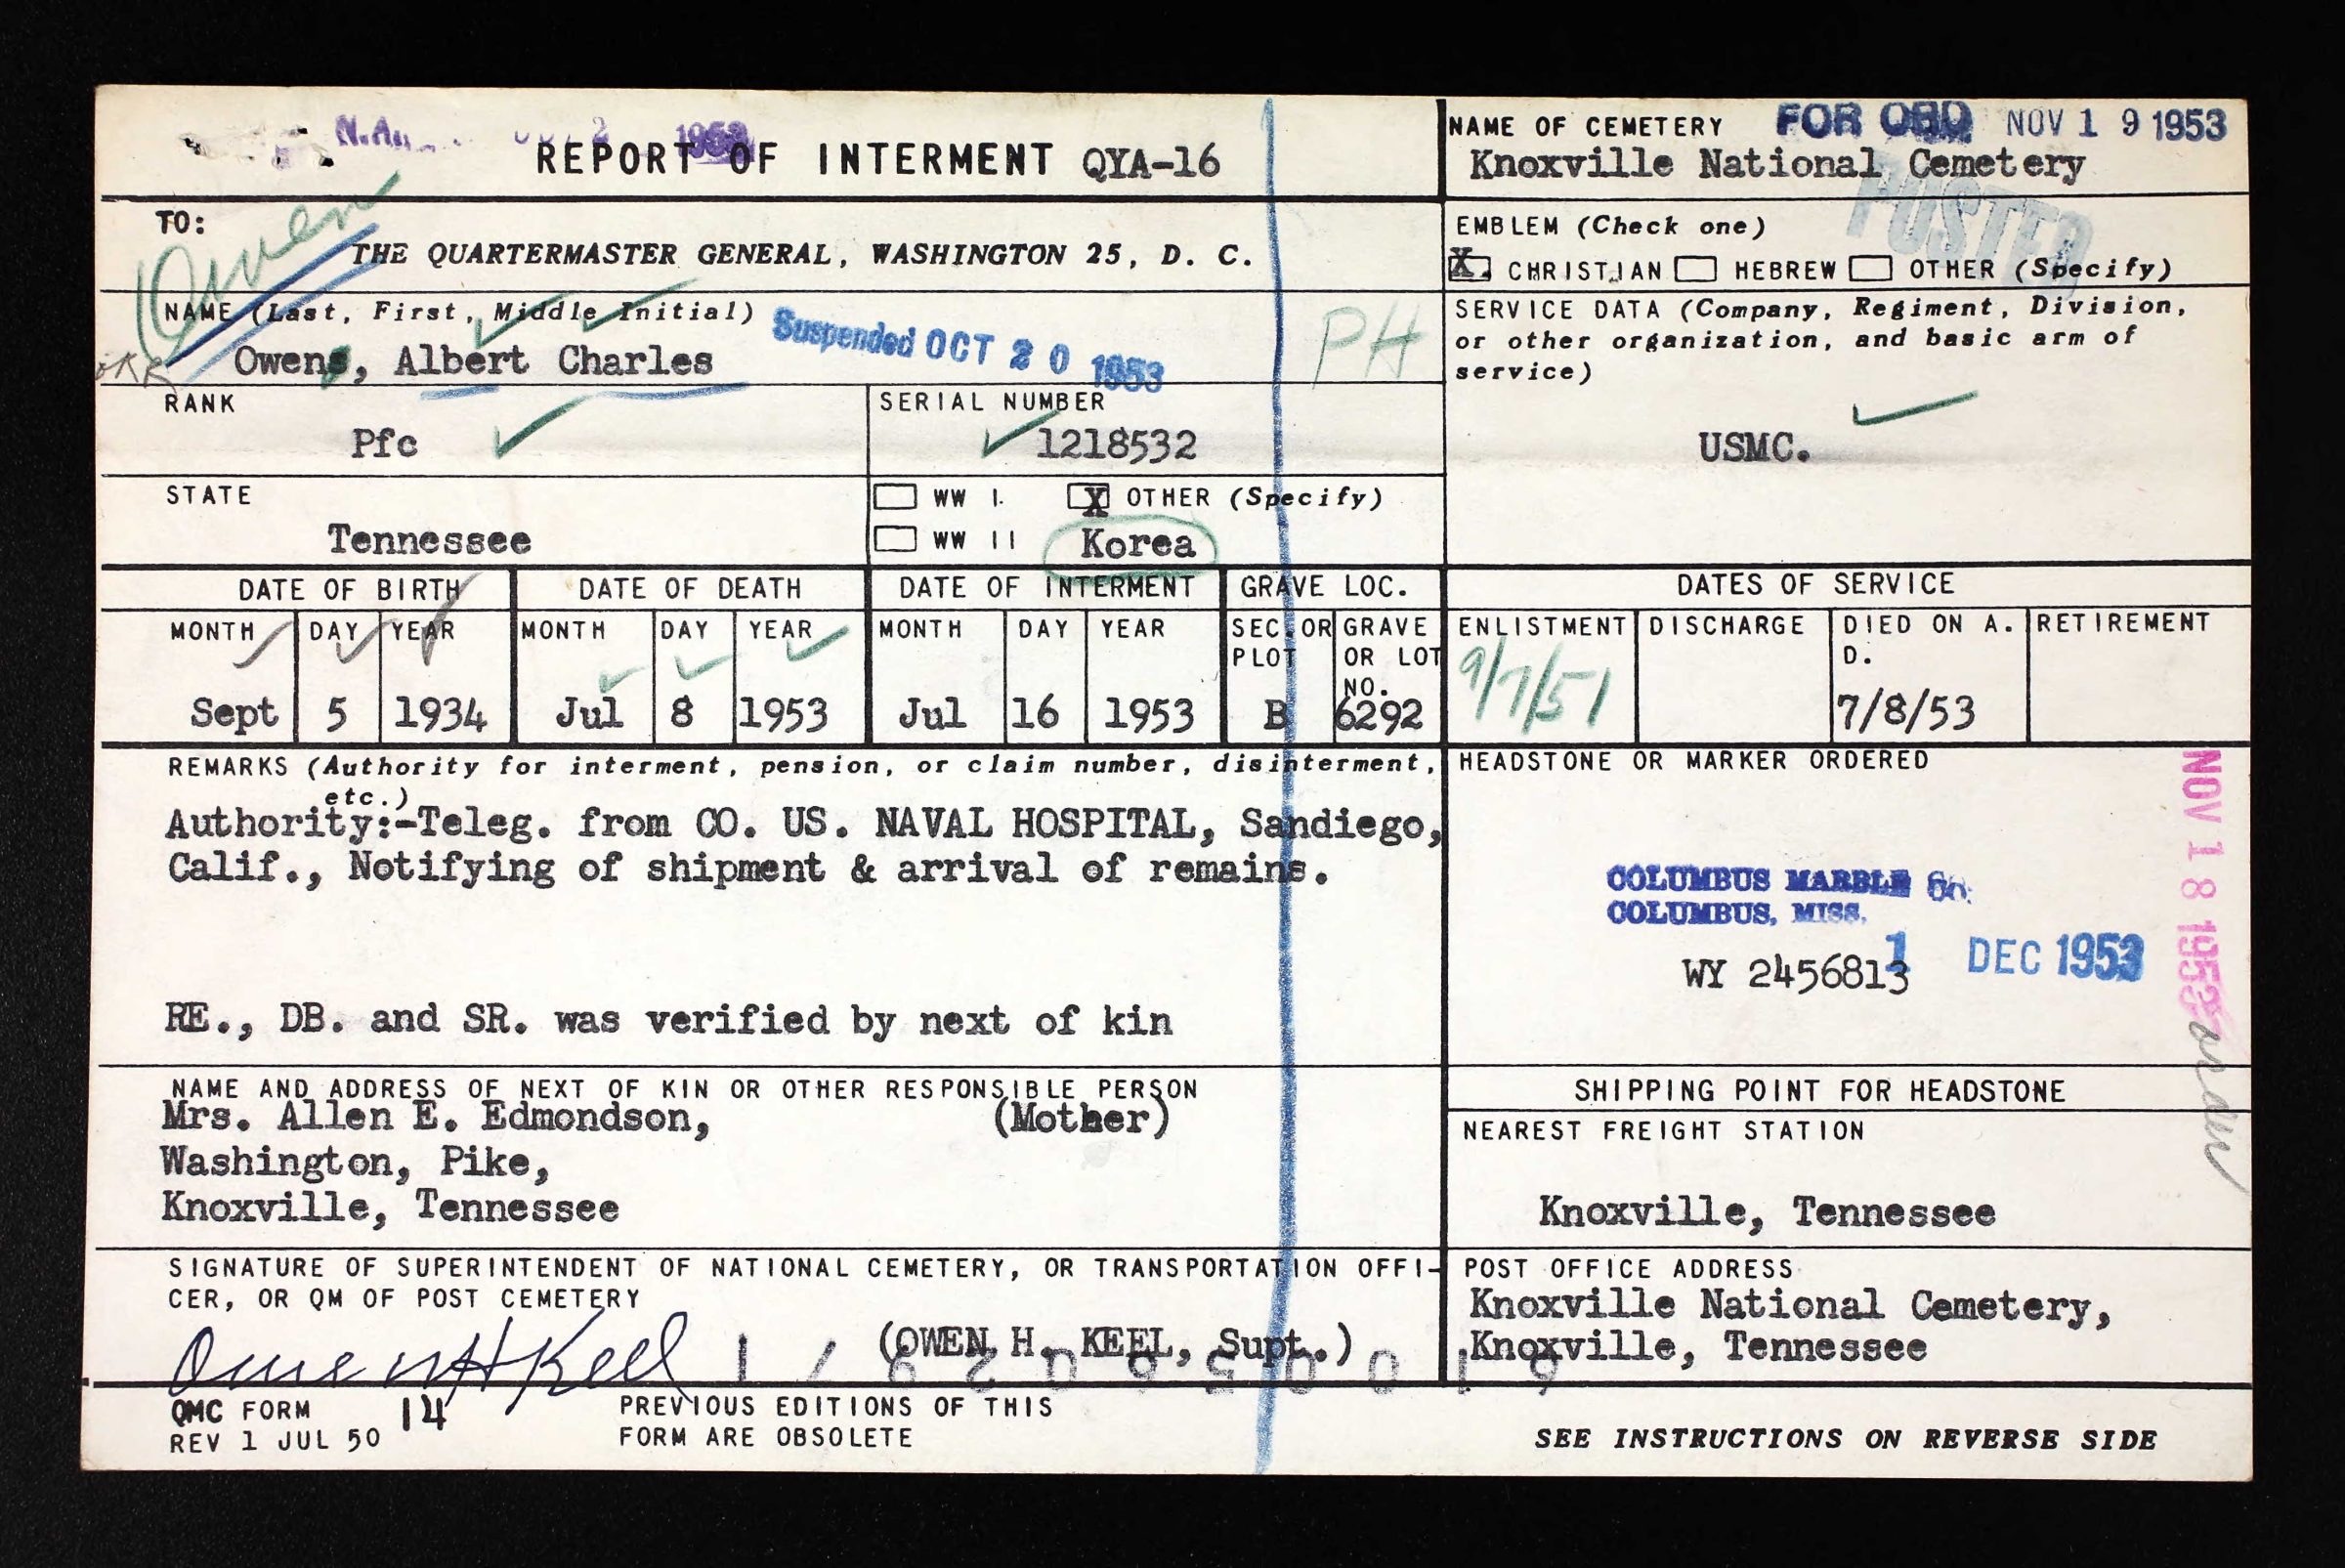 REPORT OF INTERMENT QYA-16
1953
NAME OF CEMETERY FOR OBQ NOV 19 1953
Knoxville National Cemetery
POSTED
Owen
TO:
THE QUARTERMASTER GENERAL, WASHINGTON 25, D. C.
EMBLEM (Check one)
X CHRISTIAN HEBREW OTHER (Specify)
NAME (Last, First, Middle Initial)
Owens, Albert Charles
Suspended OCT 20 1953
PH
SERVICE DATA (Company, Regiment, Division,
or other organization, and basic arm of
service)
USMC.
RANK
Pfc
SERIAL NUMBER
1218532
STATE
Tennessee
WW I. X OTHER (Specify)
WW II Korea
DATE OF BIRTH DATE OF DEATH DATE OF INTERMENT GRAVE LOC. DATES OF SERVICE
MONTH DAY YEAR MONTH DAY YEAR MONTH DAY YEAR SEC. OR PLOT GRAVE OR LOT NO. ENLISTMENT DISCHARGE DIED ON A. D. RETIREMENT
Sept 5 1934 Jul 8 1953 Jul 16 1953 B 6292 9/7/51 7/8/53
REMARKS (Authority for interment, pension, or claim number, disinterment,
etc.)
Authority:-Teleg. from CO. US. NAVAL HOSPITAL, Sandiego,
Calif., Notifying of shipment & arrival of remains.
RE., DB. and SR. was verified by next of kin
HEADSTONE OR MARKER ORDERED
COLUMBUS MARBLE Co.
COLUMBUS, MISS.
WY 2456813
1 DEC 1953
NOV 18 1953
order
NAME AND ADDRESS OF NEXT OF KIN OR OTHER RESPONSIBLE PERSON
Mrs. Allen E. Edmondson, (Mother)
Washington, Pike,
Knoxville, Tennessee
SHIPPING POINT FOR HEADSTONE
NEAREST FREIGHT STATION
Knoxville, Tennessee
SIGNATURE OF SUPERINTENDENT OF NATIONAL CEMETERY, OR TRANSPORTATION OFFI-
CER, OR QM OF POST CEMETERY
Owen H Keel
(OWEN H. KEEL, Supt.)
POST OFFICE ADDRESS
Knoxville National Cemetery,
Knoxville, Tennessee
QMC FORM 14
REV 1 JUL 50
PREVIOUS EDITIONS OF THIS
FORM ARE OBSOLETE
SEE INSTRUCTIONS ON REVERSE SIDE